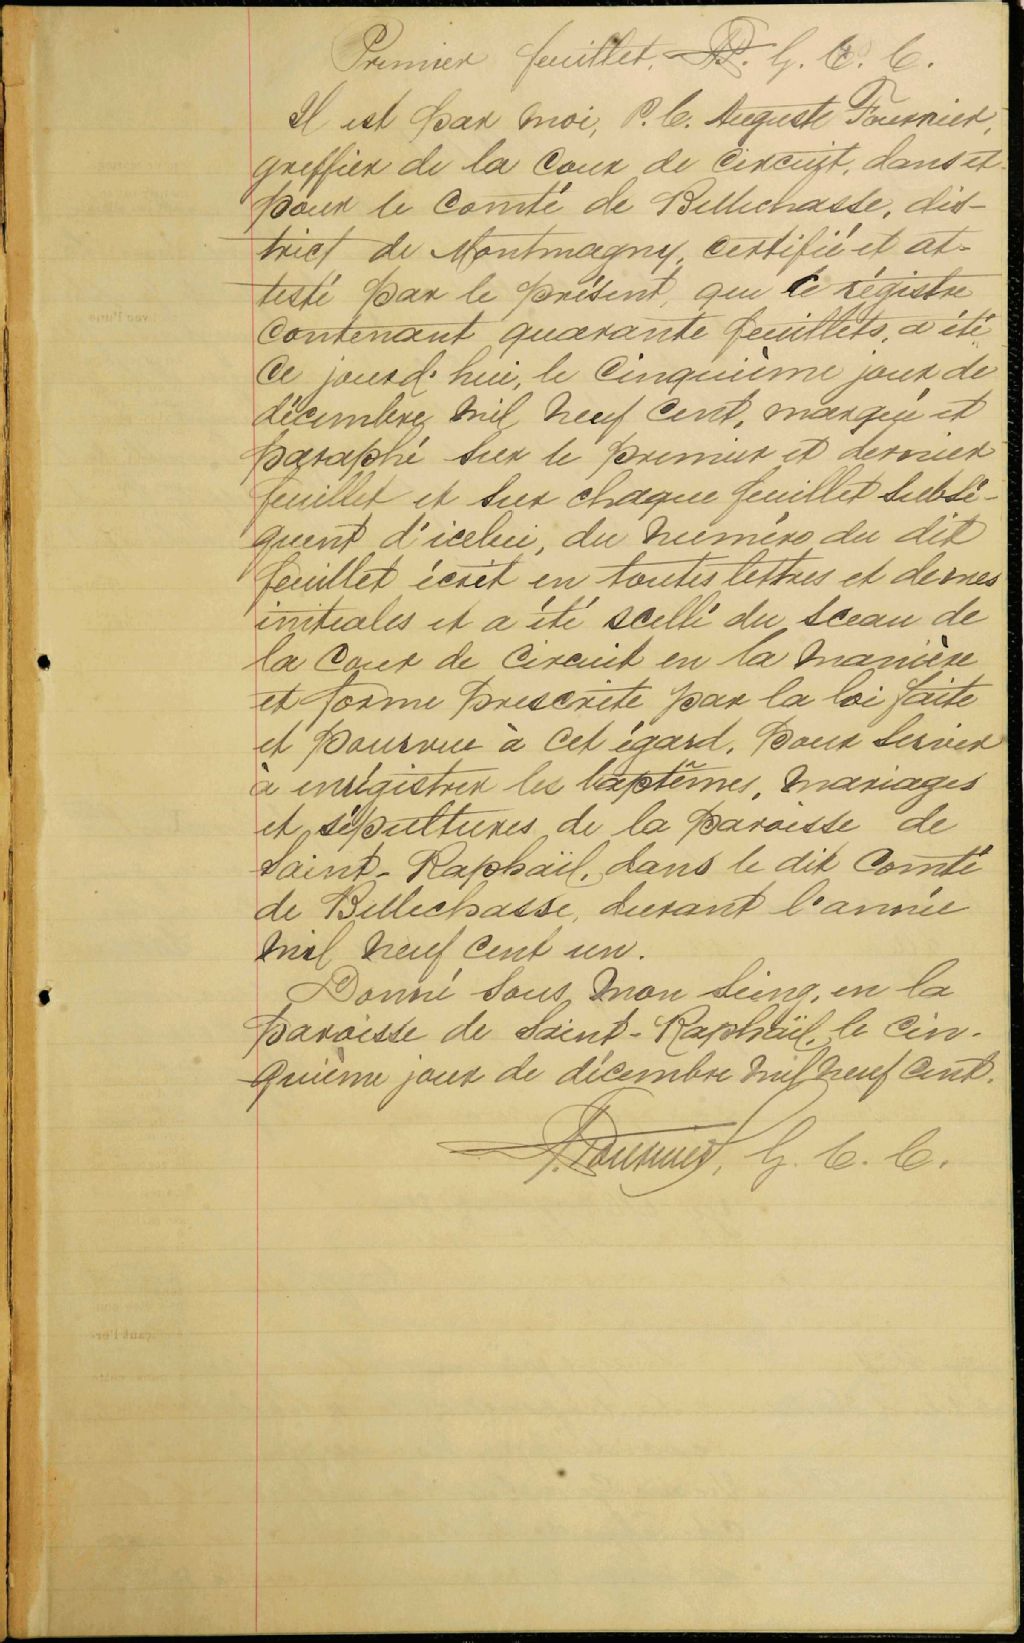 Premier feuillet, G. C. C.
Il est par moi, P. C. Auguste Fournier,
greffier de la Cour de Circuit, dans et
pour le Comté de Bellechasse, dis-
trict de Montmagny, certifié et at-
testé par le présent, que le régistre
contenant quarante feuillets, a été
ce jourd'hui, le cinquième jour de
décembre mil neuf cent, marqué et
paraphé sur le premier et dernier
feuillet et sur chaque feuillet subsé-
quent d'icelui, du numéro du dit
feuillet écrit en toutes lettres et de mes
initiales et a été scellé du sceau de
la Cour de Circuit en la manière
et forme prescrite par la loi faite
et pourvue à cet égard, pour servir
à enrégistrer les baptêmes, mariages
et sépultures de la paroisse de
Saint-Raphaël, dans le dit Comté
de Bellechasse, durant l'année
mil neuf cent un.
Donné sous mon seing, en la
paroisse de Saint-Raphaël, le cin-
quième jour de décembre mil neuf cent.
A. Fournier, G. C. C.